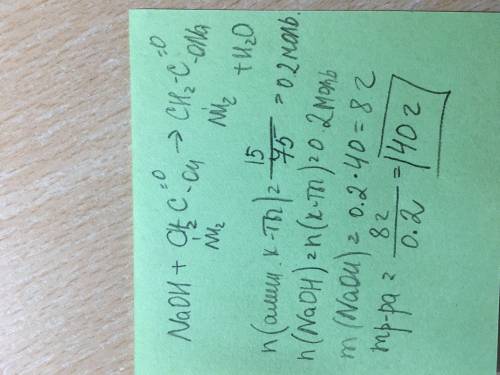 NaOH + CH₂-C(=O)-OH → CH₂-C(=O)-ONa
NH₂ NH₂ + H₂O
n(амин. к-ты) = 15/75 = 0.2 моль.
n(NaOH) = n(к-ты) = 0.2 моль
m(NaOH) = 0.2 · 40 = 8 г
mр-ра = 8 г/0.2 = 40 г